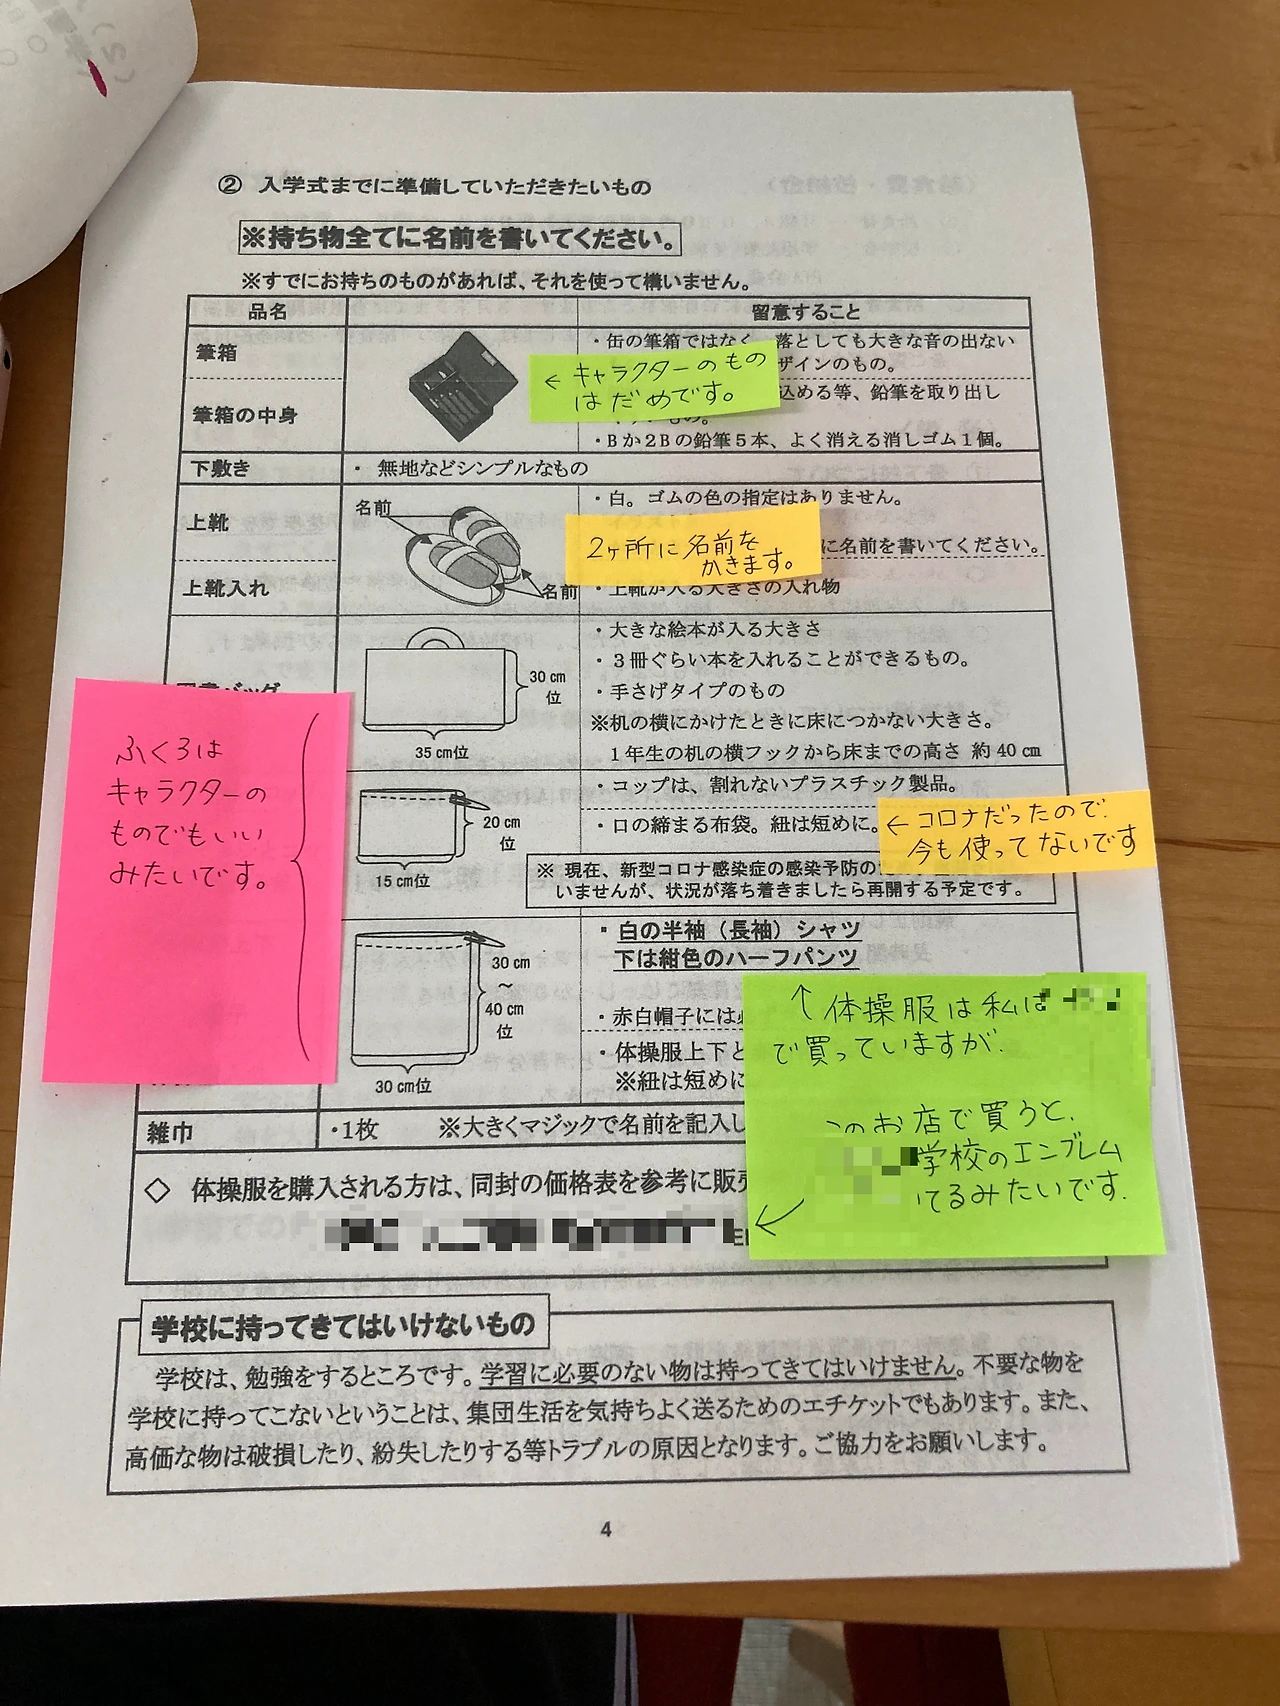 ② 入学式までに準備していただきたいもの
※持ち物全てに名前を書いてください。
※すでにお持ちのものがあれば、それを使って構いません。
品名
留意すること
筆箱
・缶の筆箱ではなく、落としても大きな音の出ない
ザインのもの。
← キャラクターのもの
はだめです。
筆箱の中身
込める等、鉛筆を取り出し
もの。
・Bか2Bの鉛筆5本、よく消える消しゴム1個。
下敷き
・ 無地などシンプルなもの
上靴
名前
名前
・白。ゴムの色の指定はありません。
に名前を書いてください。
2ヶ所に名前を
かきます。
上靴入れ
・上靴が入る大きさの入れ物
バッグ
30㎝
位
35㎝位
・大きな絵本が入る大きさ
・3冊ぐらい本を入れることができるもの。
・手さげタイプのもの
※机の横にかけたときに床につかない大きさ。
1年生の机の横フックから床までの高さ 約40㎝
ふくろは
キャラクターの
ものでもいい
みたいです。
20㎝
位
15㎝位
・コップは、割れないプラスチック製品。
・口の締まる布袋。紐は短めに。
← コロナだったので、
今も使ってないです
※ 現在、新型コロナ感染症の感染予防のた
いませんが、状況が落ち着きましたら再開する予定です。
30㎝
～
40㎝
位
30㎝位
・白の半袖（長袖）シャツ
下は紺色のハーフパンツ
・赤白帽子には
・体操服上下と
※紐は短めに
↑ 体操服は私は
で買っていますが、
このお店で買うと、
学校のエンブレム
てるみたいです。
←
雑巾
・1枚
※大きくマジックで名前を記入し
◇ 体操服を購入される方は、同封の価格表を参考に販売
学校に持ってきてはいけないもの
学校は、勉強をするところです。学習に必要のない物は持ってきてはいけません。不要な物を
学校に持ってこないということは、集団生活を気持ちよく送るためのエチケットでもあります。また、
高価な物は破損したり、紛失したりする等トラブルの原因となります。ご協力をお願いします。
4